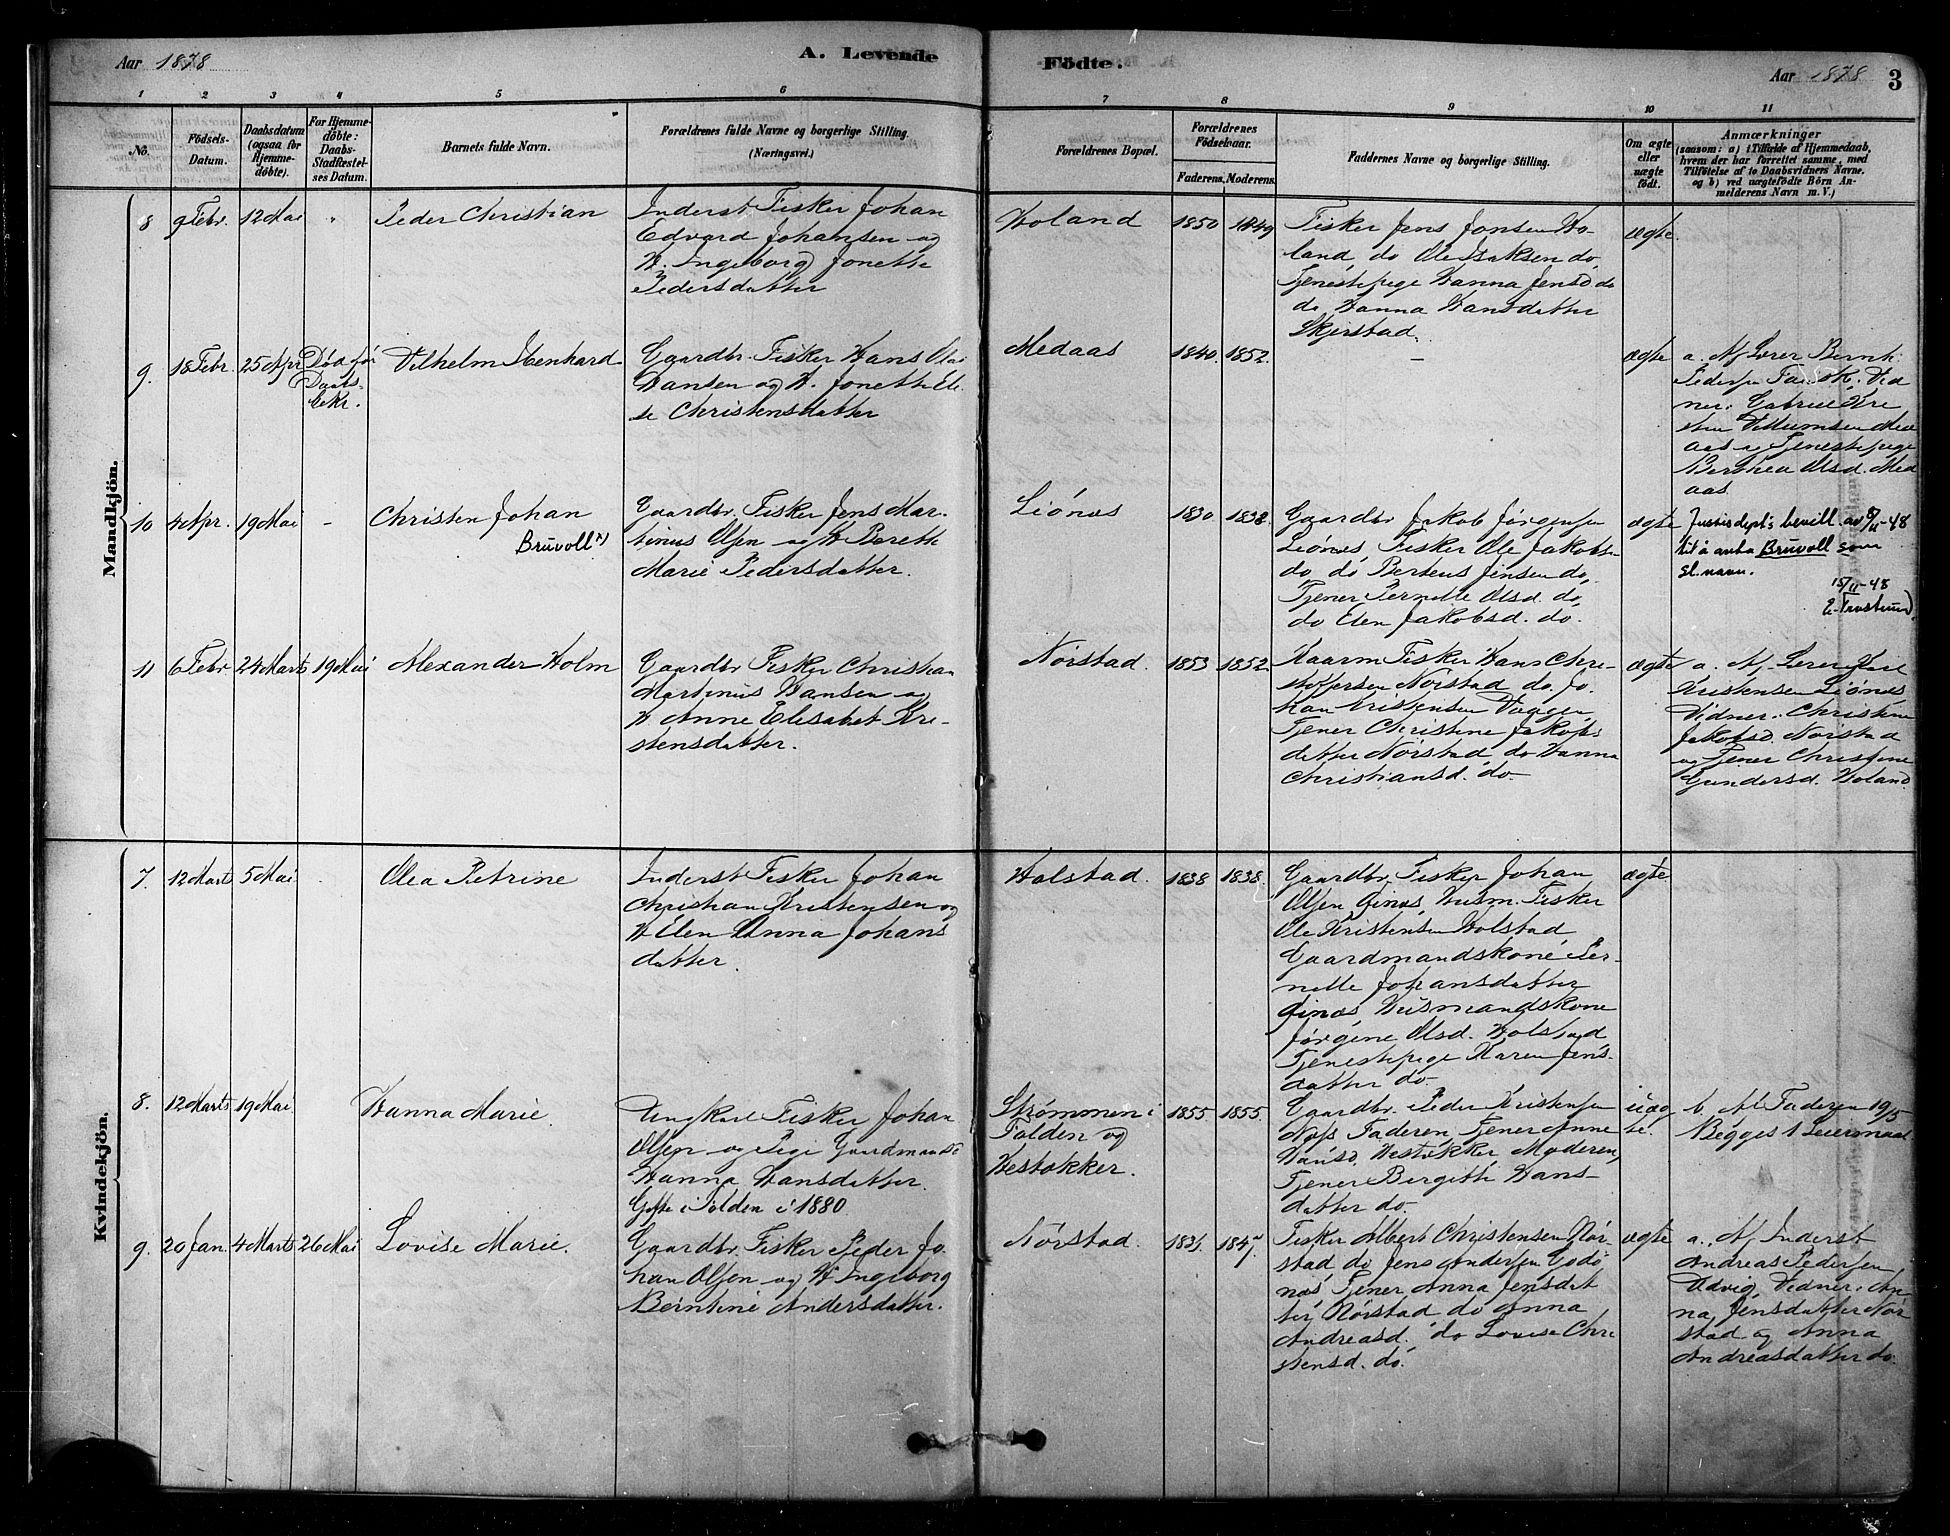 Aar 1878
A. Levende Födte.
Aar 1878
3
1 2 3 4 5 6 7 8 9 10 11
No.
Födsels-
Datum.
Daabsdatum
(ogsaa for
Hjemme-
döbte).
For Hjemme-
döbte:
Daabs-
Stadfæstel-
ses Datum.
Barnets fulde Navn.
Forældrenes fulde Navne og borgerlige Stilling.
(Næringsvei.)
Forældrenes Bopæl.
Forældrenes
Födselsaar.
Faderens. Moderens.
Faddernes Navne og borgerlige Stilling.
Om ægte
eller
uægte
födt.
Anmærkninger
(saasom: a) i Tilfælde af Hjemmedaab,
hvem der har forrettet samme, med
Tilföielse af to Daabsvidners Navne,
og b) ved uægtefödte Börn An-
melderens Navn m. V.)
Mandkjön.
8
9 Febr.
12 Mai
"
Peder Christian
Inderst Fisker Johan
Edvard Johansen og
H. Ingeborg Jonette
Pedersdatter
Holand
1850
1849
Fisker Jens Jonsen Ho-
land do Ole Isaksen do,
Tjenestepige Hanna Jensd do
do Hanna Hansdatter
Skjerstad.
ægte.
9.
18 Febr.
25 Apr
Død før
Daabs-
bekr.
Vilhelm Ibenhard
Gaardbr. Fisker Hans Olai
Hansen og H. Jonette El-
se Christensdatter
Medaas
1840.
1852.
–
ægte
a. Af Lærer Bernh.
Pedersen Vid
ner: Gabriel Kre
sten Villumsen Med
aas og Tjenestepige
Berthea Olsd. Med
aas.
10
4 Apr.
19 Mai
–
Christen Johan
Bruvoll
Gaardbr. Fisker Jens Mar-
tinus Olsen og H Bereth
Marie Pedersdatter.
Liönes
1830
1838.
Gaardbr Jakob Jørgensen
Liönes, Fisker Ole Jakobs
do do Berteus Jensen do,
Tjener Pernelle Olsd. do,
do Elen Jakobsd. do.
ægte
Justisdept's bevill. av 8/11-48
til å anta Bruvoll som
sl.navn.
15/11-48
11
6 Febr.
24 Marts
19 Mai
Alexander Holm
Gaardbr Fisker Christian
Martinus Hansen og
H Anne Elisabet Kre-
stensdatter.
Nörstad.
1853
1852.
Kaarm Fisker Hans Chri-
stoffersen Nörstad do. Jo-
han Kristensen Vaagen
Tjener Christine Jakobs
datter Nörstad do Hanna
Christiansd. do
ægte
a. Af Lærer
Kristensen Liönes
Vidner: Christine
Jakobsd. Nörstad
og Tjener Christine
Gundersd. Holand
Kvindekjön.
7.
12 Marts
5 Mai
Olea Petrine
Inderst Fisker Johan
Christian Kristensen og
H Elen Anna Johans
datter.
Holstad.
1838
1838.
Gaardbr. Fisker Johan
Olsen Ginås, Husm. Fisker
Ole Kristensen Holstad
Gaardmandskone Per-
nelle Johansdatter
Ginås, Husmandskone
Jørgine Olsd. Holstad
Tjenestepige Karen Jens-
datter do-
ægte.
8.
12 Marts
19 Mai
Hanna Marie
Ungkarl Fisker Johan
Olsen og Pige Gaardmands
Hanna Hansdatter.
Gifte i Folden i 1880
Strømmen i
Folden og
Hestokker.
1855
1855.
Gaardbr. Peder Kristensen
Faderen, Tjener Anne
Hansd. Hestokker, Moderen,
Tjener Birgitte Hans-
datter do.
uæg
te.
b. Af Faderen 19/5
Begges 1 Leiermaal
9.
20 Jan.
4 Marts
26 Mai
Lovise Marie.
Gaardbr. Fisker Peder Jo-
han Olsen og H Ingeborg
Berntine Andersdatter.
Nörstad.
1847
Fisker Albert Christensen Nör-
stad do Jens Andersen Godö
nes, Tjener Anna Jensdat
ter, Nörstad do Anna
Andreasd. do Lovise Chri
stensd. do.
ægte
a. Af Inderst
Andreas Pedersen
Udvig, Vidner: An-
na Jensdatter Nör
stad og Anna
Andreasdatter do.